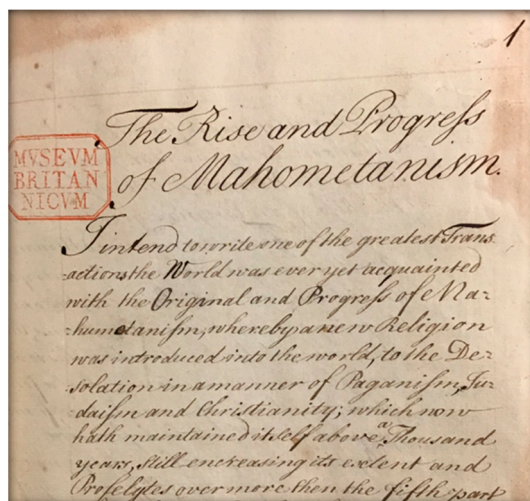 1
The Rise and Progreſs
of Mahometanism.
MVSEVM
BRITAN
NICVM
I intend to write one of the greatest Trans
-actions the World was ever yet acquainted
with the Original and Progreſs of Ma-
-humetaniſm, whereby a new Religion
was introduced into the world, to the De-
-solation in a manner of Paganiſm, Ju-
daiſm and Christianity; which now
hath maintained it self above a Thousand
years, still encreasing its extent and
Proselytes over more then the fifth part